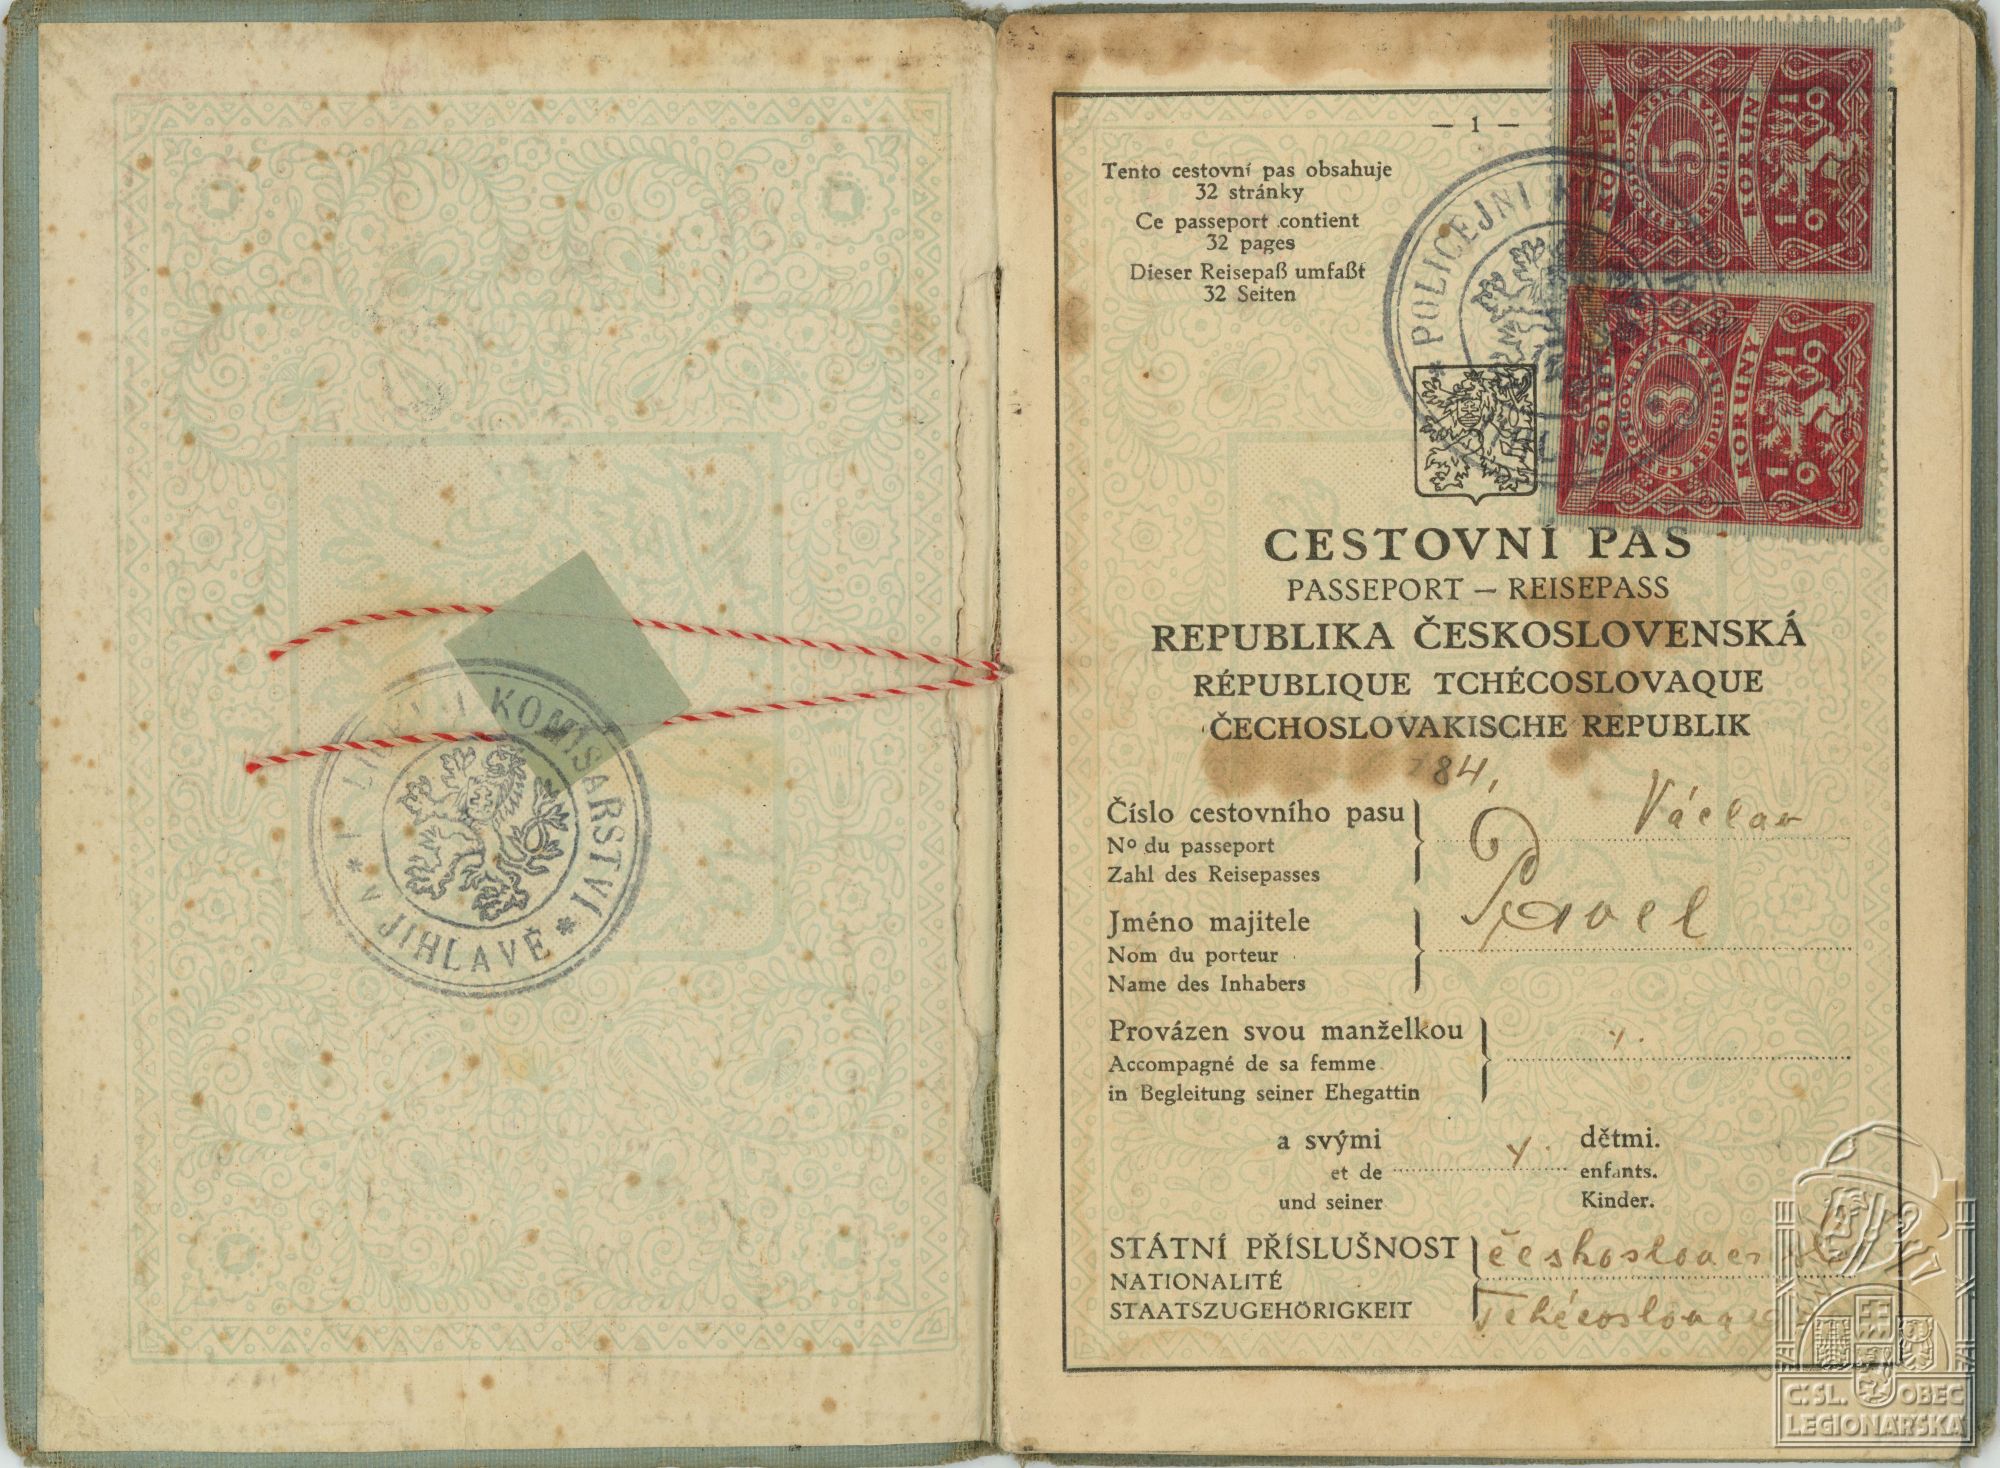 POLICEJNÍ KOMISAŘSTVÍ
* V JIHLAVĚ *
— 1 —
Tento cestovní pas obsahuje
32 stránky
Ce passeport contient
32 pages
Dieser Reisepaß umfaßt
32 Seiten
* POLICEJNÍ
KOLEK
ČESKOSLOVENSKÁ
5
KORUN
1919
KOLEK
ČESKOSLOVENSKÁ
3
KORUNY
1919
CESTOVNÍ PAS
PASSEPORT — REISEPASS
REPUBLIKA ČESKOSLOVENSKÁ
RÉPUBLIQUE TCHÉCOSLOVAQUE
ČECHOSLOVAKISCHE REPUBLIK
84,
Číslo cestovního pasu
Nº du passeport
Zahl des Reisepasses
Václav
Jméno majitele
Nom du porteur
Name des Inhabers
Pavel
Provázen svou manželkou
Accompagné de sa femme
in Begleitung seiner Ehegattin
a svými dětmi.
et de enfants.
und seiner Kinder.
STÁTNÍ PŘÍSLUŠNOST
NATIONALITÉ
STAATSZUGEHÖRIGKEIT
československá
ČSL. OBEC
LEGIONÁŘSKÁ